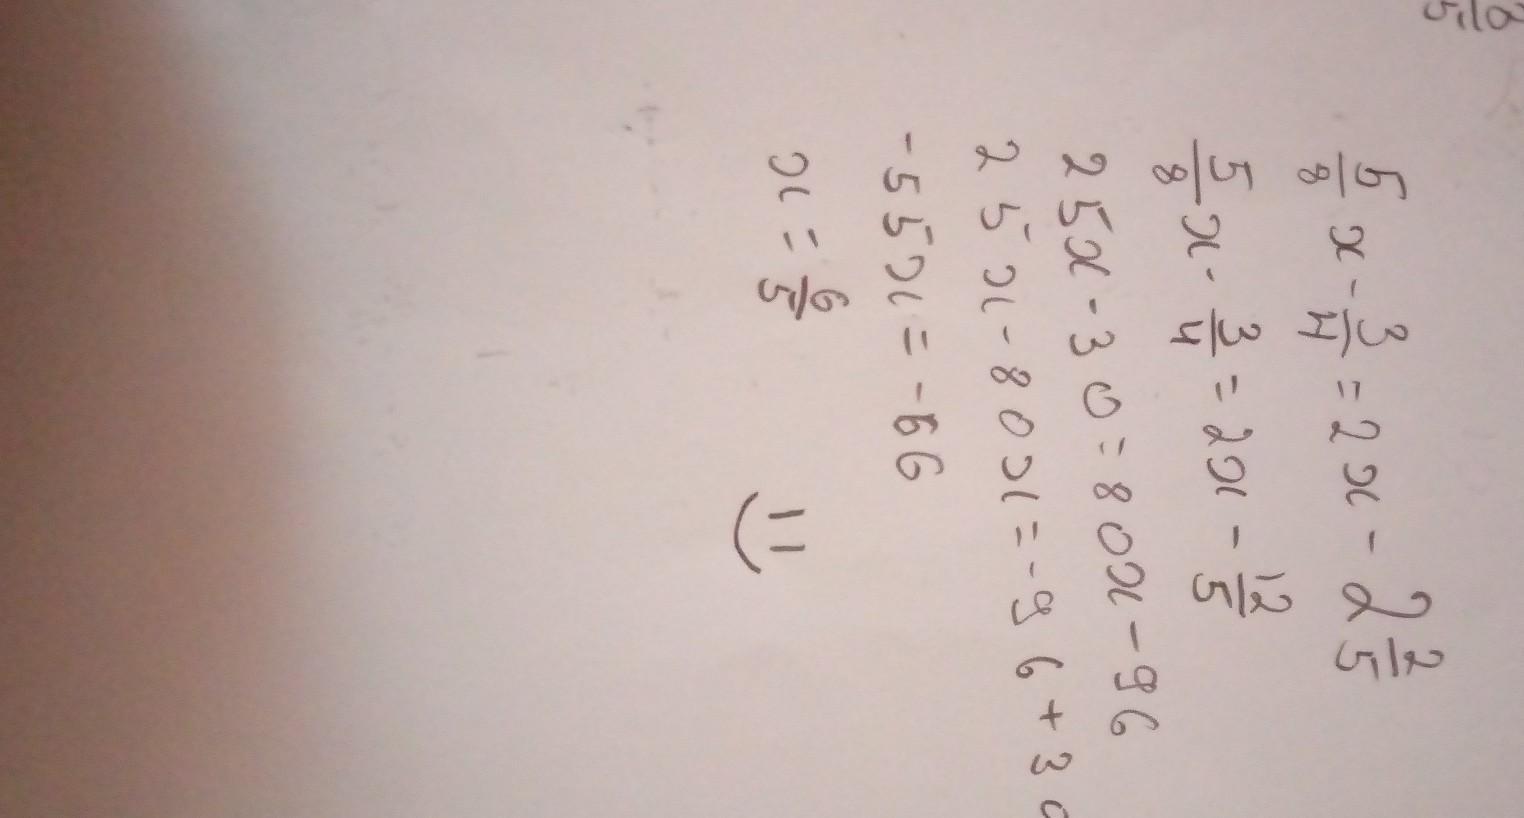 5/8 x - 3/4 = 2x - 2 2/5
5/8 x - 3/4 = 2x - 12/5
25x - 30 = 80x - 96
25x - 80x = -96 + 30
-55x = -66
x = 6/5